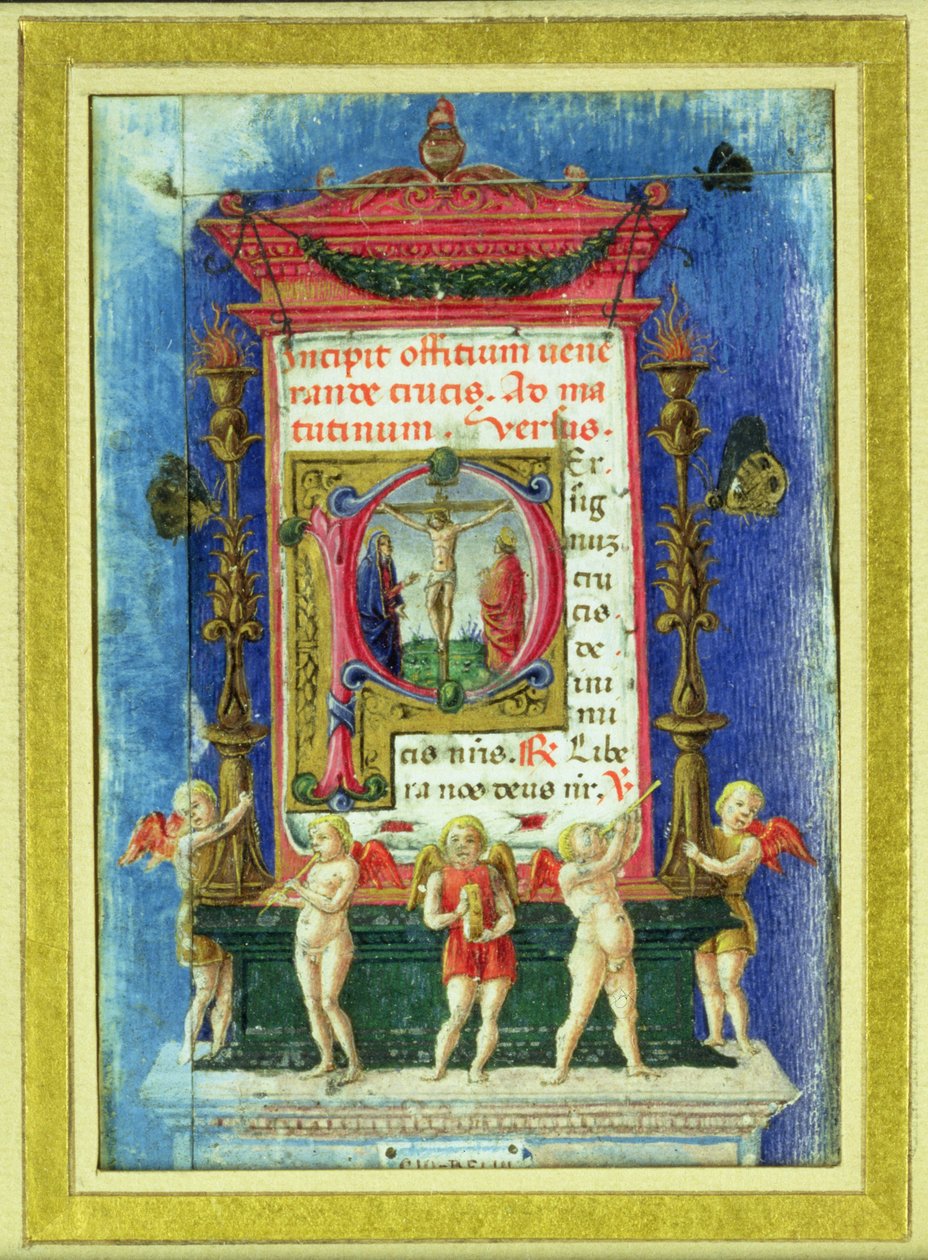 Incipit offitium uene
rande crucis. Ad ma
tutinum. Versus.
PEr.
sig
nuz
cru
cis.
de
ini
mi
cis nr̄is. ℟ Libe
ra nos deus nr̄, ℣